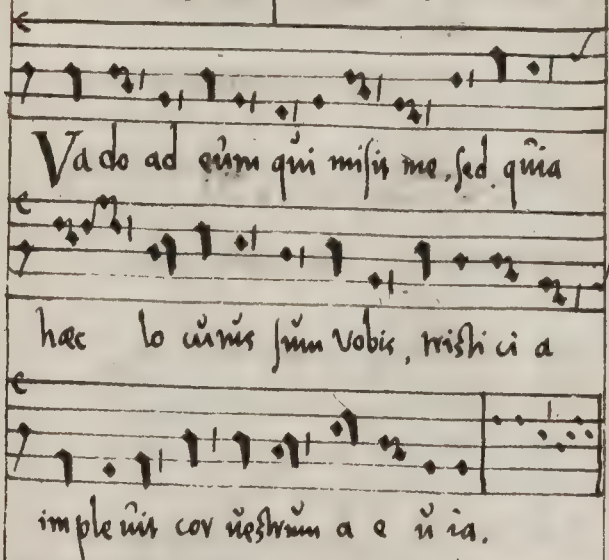 Va do ad eům qůi misit me, sed. qůia
hæc lo cůtůs sům vobis, tristi ci a
imple ůit cor ůestrům a e ů ia.